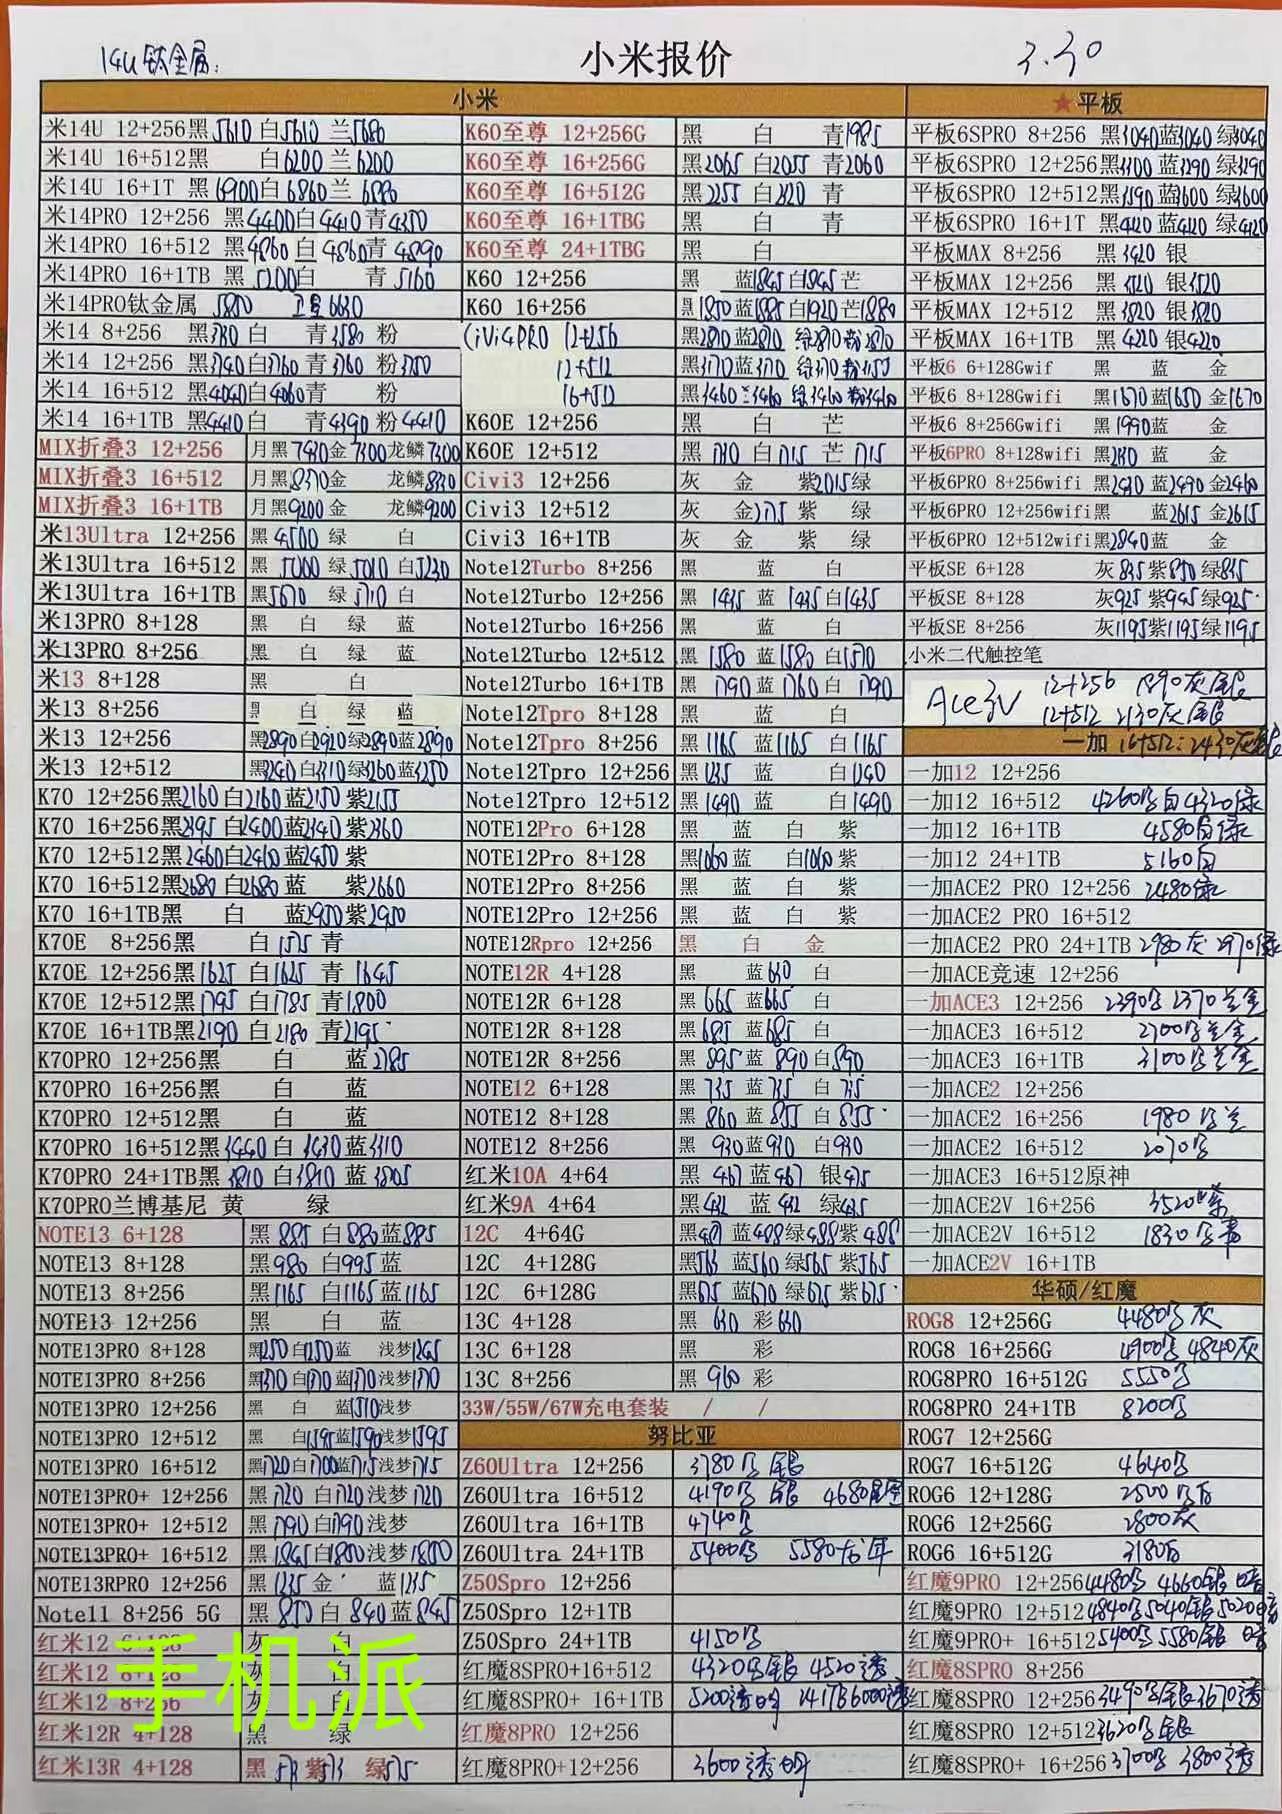 14U钛金属:
小米报价
3.30
小米
米14U 12+256黑5610 白5610 兰5680
米14U 16+512黑 白6200 兰6200
米14U 16+1T 黑6900白6860兰6880
米14PRO 12+256 黑4400白4410青4350
米14PRO 16+512 黑4860白4860青4890
米14PRO 16+1TB 黑5200白 青5160
米14PRO钛金属 5850 卫星6630
米14 8+256 黑 白 青3580 粉
米14 12+256 黑3740白3760青3760粉3750
米14 16+512 黑4040白4060青 粉
米14 16+1TB 黑4410白 青4390粉4410
MIX折叠3 12+256 月黑7430金7300龙鳞7300
MIX折叠3 16+512 月黑8370金 龙鳞8330
MIX折叠3 16+1TB 月黑9200金 龙鳞9200
米13Ultra 12+256 黑4500 绿 白
米13Ultra 16+512 黑 绿5010白5230
米13Ultra 16+1TB 黑5670 绿5710白
米13PRO 8+128 黑 白 绿 蓝
米13PRO 8+256 黑 白 绿 蓝
米13 8+128 黑 白
米13 8+256 黑 白 绿 蓝
米13 12+256 黑2890白2920绿2890蓝2890
米13 12+512 黑3240白3310绿3260蓝3250
K70 12+256黑2160白2160蓝2150紫2155
K70 16+256黑2395白2400蓝2340紫2360
K70 12+512黑2460白2460蓝2450紫
K70 16+512黑2680白2680蓝 紫2660
K70 16+1TB黑 白 蓝2950紫2950
K70E 8+256黑 白1575青
K70E 12+256黑1625白1625青1645
K70E 12+512黑1795白1785青1800
K70E 16+1TB黑2190白2180青2195
K70PRO 12+256黑 白 蓝2785
K70PRO 16+256黑 白 蓝
K70PRO 12+512黑 白 蓝
K70PRO 16+512黑3440白3430蓝3310
K70PRO 24+1TB黑3810白3810蓝3805
K70PRO兰博基尼 黄 绿
NOTE13 6+128 黑885白880蓝885
NOTE13 8+128 黑980白995蓝
NOTE13 8+256 黑1165白1165蓝1165
NOTE13 12+256 黑 白 蓝
NOTE13PRO 8+128 黑1250白1250蓝 浅梦1245
NOTE13PRO 8+256 黑1370白1370蓝1370浅梦1370
NOTE13PRO 12+256 黑 白 蓝1510浅梦
NOTE13PRO 12+512 黑 白1595蓝1590浅梦1595
NOTE13PRO 16+512 黑1720白1700蓝1715浅梦1715
NOTE13PRO+ 12+256 黑1720白1720浅梦1720
NOTE13PRO+ 12+512 黑1790白1790浅梦
NOTE13PRO+ 16+512 黑1845白1850浅梦1850
NOTE13RPRO 12+256 黑1235金 蓝1235
Note11 8+256 5G 黑850白840蓝845
红米12 6+128 灰 白
红米12 8+128 灰 白
红米12 8+256 灰 白
红米12R 4+128 黑 绿
红米13R 4+128 黑 紫 绿575
手机派
K60至尊 12+256G 黑 白 青1985
K60至尊 16+256G 黑2065白2055青2060
K60至尊 16+512G 黑2255白2320青
K60至尊 16+1TBG 黑 白 青
K60至尊 24+1TBG 黑 白
K60 12+256 黑 蓝1845白1845芒
K60 16+256 黑1850蓝1885白1920芒1880
CiVi4PRO 12+256 黑2870蓝2870绿2870粉2870
12+512 黑3170蓝3170绿3170粉3150
16+512 黑3460蓝3460绿3460粉3460
K60E 12+256 黑 白 芒
K60E 12+512 黑1730白1715芒1715
Civi3 12+256 灰 金 紫2015绿
Civi3 12+512 灰 金2175紫 绿
Civi3 16+1TB 灰 金 紫 绿
Note12Turbo 8+256 黑 蓝 白
Note12Turbo 12+256 黑1435蓝1435白1435
Note12Turbo 16+256 黑 蓝 白
Note12Turbo 12+512 黑1580蓝1580白1570
Note12Turbo 16+1TB 黑1790蓝1760白1790
Note12Tpro 8+128 黑 蓝 白
Note12Tpro 8+256 黑1165蓝1165白1165
Note12Tpro 12+256 黑1235蓝 白1240
Note12Tpro 12+512 黑1490蓝 白1490
NOTE12Pro 6+128 黑 蓝 白 紫
NOTE12Pro 8+128 黑1060蓝 白1060紫
NOTE12Pro 8+256 黑 蓝 白 紫
NOTE12Pro 12+256 黑 蓝 白 紫
NOTE12Rpro 12+256 黑 白 金
NOTE12R 4+128 黑 蓝630白
NOTE12R 6+128 黑665蓝665白
NOTE12R 8+128 黑685蓝685白
NOTE12R 8+256 黑895蓝890白890
NOTE12 6+128 黑735蓝735白735
NOTE12 8+128 黑860蓝855白855
NOTE12 8+256 黑930蓝930白930
红米10A 4+64 黑467蓝467银475
红米9A 4+64 黑432蓝432绿435
12C 4+64G 黑 蓝488绿488紫488
12C 4+128G 黑563蓝560绿565紫565
12C 6+128G 黑675蓝670绿675紫675
13C 4+128 黑630彩630
13C 6+128 黑 彩
13C 8+256 黑960彩
33W/55W/67W充电套装 / /
努比亚
Z60Ultra 12+256 3780 银
Z60Ultra 16+512 4190 银 4680星空
Z60Ultra 16+1TB 4740
Z60Ultra 24+1TB 5400 5580龙年
Z50Spro 12+256
Z50Spro 12+1TB
Z50Spro 24+1TB 4150
红魔8SPRO+16+512 4320 银 4520透
红魔8SPRO+ 16+1TB 5200 24 1TB6000透
红魔8PRO 12+256
红魔8PRO+12+256 3600透明
★平板
平板6SPRO 8+256 黑3040蓝3040绿3040
平板6SPRO 12+256黑3300蓝3290绿3290
平板6SPRO 12+512黑3590蓝3600绿3600
平板6SPRO 16+1T 黑4120蓝4120绿4120
平板MAX 8+256 黑3420 银
平板MAX 12+256 黑3520银3520
平板MAX 12+512 黑3820银3820
平板MAX 16+1TB 黑4220银4220
平板6 6+128Gwif 黑 蓝 金
平板6 8+128Gwifi 黑1670蓝1650金1670
平板6 8+256Gwifi 黑1990蓝 金
平板6PRO 8+128wifi 黑 蓝 金
平板6PRO 8+256wifi 黑 蓝2490金2460
平板6PRO 12+256wifi黑 蓝2615金2615
平板6PRO 12+512wifi黑2840蓝 金
平板SE 6+128 灰835紫850绿835
平板SE 8+128 灰925紫945绿925
平板SE 8+256 灰1195紫1195绿1195
小米二代触控笔
Ace3V 12+256 1890灰银
12+512 2130灰银
一加 16+512:2430灰银
一加12 12+256
一加12 16+512 4260 白4320绿
一加12 16+1TB 4580白绿
一加12 24+1TB 5160白
一加ACE2 PRO 12+256 2480绿
一加ACE2 PRO 16+512
一加ACE2 PRO 24+1TB 2980灰 2970绿
一加ACE竞速 12+256
一加ACE3 12+256 2390 2370兰金
一加ACE3 16+512 2700 兰金
一加ACE3 16+1TB 3100 兰金
一加ACE2 12+256
一加ACE2 16+256 1980 兰
一加ACE2 16+512 2070
一加ACE3 16+512原神
一加ACE2V 16+256 3520
一加ACE2V 16+512 1830
一加ACE2V 16+1TB
华硕/红魔
ROG8 12+256G 4480 灰
ROG8 16+256G 4900 4840灰
ROG8PRO 16+512G 5550
ROG8PRO 24+1TB 8200
ROG7 12+256G
ROG7 16+512G 4640
ROG6 12+128G 2500 白
ROG6 12+256G 2800灰
ROG6 16+512G 3180白
红魔9PRO 12+256 4480 4660银
红魔9PRO 12+512 4840 5040银5020
红魔9PRO+ 16+512 5400 5580银
红魔8SPRO 8+256
红魔8SPRO 12+256 3490 银3670透
红魔8SPRO 12+512 3620 银
红魔8SPRO+ 16+256 3700 3800透